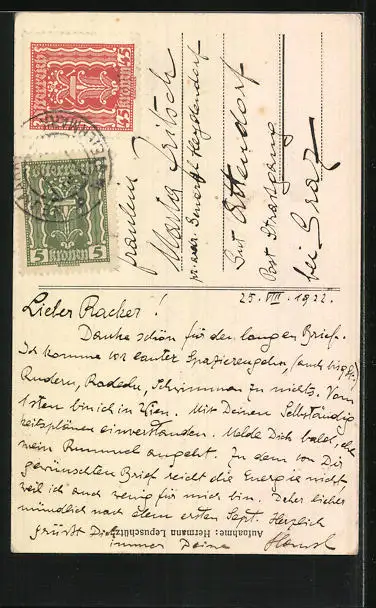 Fräulein
Maria Fritsch
per adr. General Heydendorf
Gut Ottendorf
Post Strassgang
bei Graz
25. VIII. 1922.
Lieber Racker!
Danke schön für den langen Brief.
Ich komme vor lauter Spazierengehn, (auch bissl)
Rudern, Radeln, Schwimmen zu nichts. Vom
1sten bin ich in Wien. Mit Deinen Selbständig
keitsplänen einverstanden. Melde Dich bald, ehe
mein Rummel angeht. Zu dem von Dir
gewünschten Brief reicht die Energie nicht
weil ich auch wenig für mich bin. Daher lieber
mündlich nach dem ersten Sept. Herzlich
grüßt Dich
immer Deine
Aufnahme: Hermann Lepuschütz
Österreich
25 Kronen 25
Österreich
5 Kronen 5